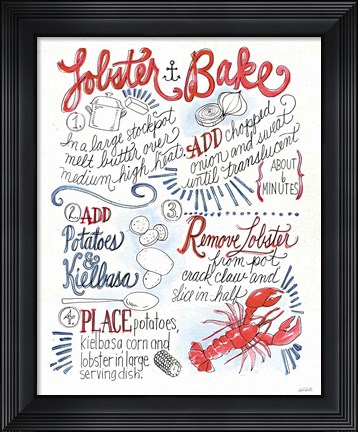 Lobster Bake
1
In a large stockpot
melt butter over
medium high heat.
ADD chopped
onion and sweat
until translucent
{ABOUT
6
MINUTES}
2 ADD
Potatoes
&
Kielbasa
3
Remove Lobster
from pot
crack claw and
slice in half
4 PLACE potatoes,
kielbasa corn and
lobster in large
serving dish.